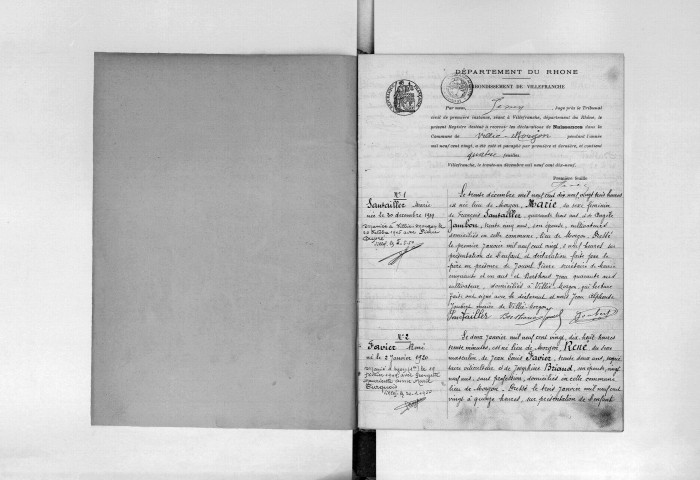 DÉPARTEMENT DU RHONE
ARRONDISSEMENT DE VILLEFRANCHE
Par nous, juge près le Tribunal
civil de première instance, séant à Villefranche, département du Rhône, le
présent Registre destiné à recevoir les déclarations de Naissances dans la
Commune de Villié-Morgon pendant l'année
mil neuf cent vingt, a été coté et paraphé par première et dernière, et contient
quatre feuilles
Villefranche, le trente-un décembre mil neuf cent dix-neuf.
Première feuille
N° 1
Santailler Marie
née le 30 décembre 1919
Mariée à Villié-Morgon le
Le trente décembre mil neuf cent dix neuf vingt trois heures
est née lieu de Morgon, Marie, du sexe féminin
de François Santailler, quarante trois ans et de
Jambon, trente cinq ans, son épouse, cultivateurs
domiciliés en cette commune, lieu de Morgon. Dressé
le premier janvier mil neuf cent vingt, heures, sur
présentation de l'enfant et déclaration faite par le
père en présence de Pierre secrétaire de mairie
cinquante et un ans, et Berthoud Jean quarante ans
cultivateur, domiciliés à Villié-Morgon, qui lecture
faite ont signé avec le déclarant et nous Jean Alphonse
maire de Villié-Morgon
Santailler
N° 2
Favier René
né le 2 Janvier 1920
Le deux janvier mil neuf cent vingt, dix huit heures
trente minutes, est né lieu de Morgon, René du sexe
masculin de Jean Louis Favier, trente deux ans,
et de Joséphine Briand, son épouse, vingt
neuf ans, sans profession, domiciliés en cette commune
lieu de Morgon. Dressé le trois janvier mil neuf cent
vingt à quinze heures, sur présentation de l'enfant